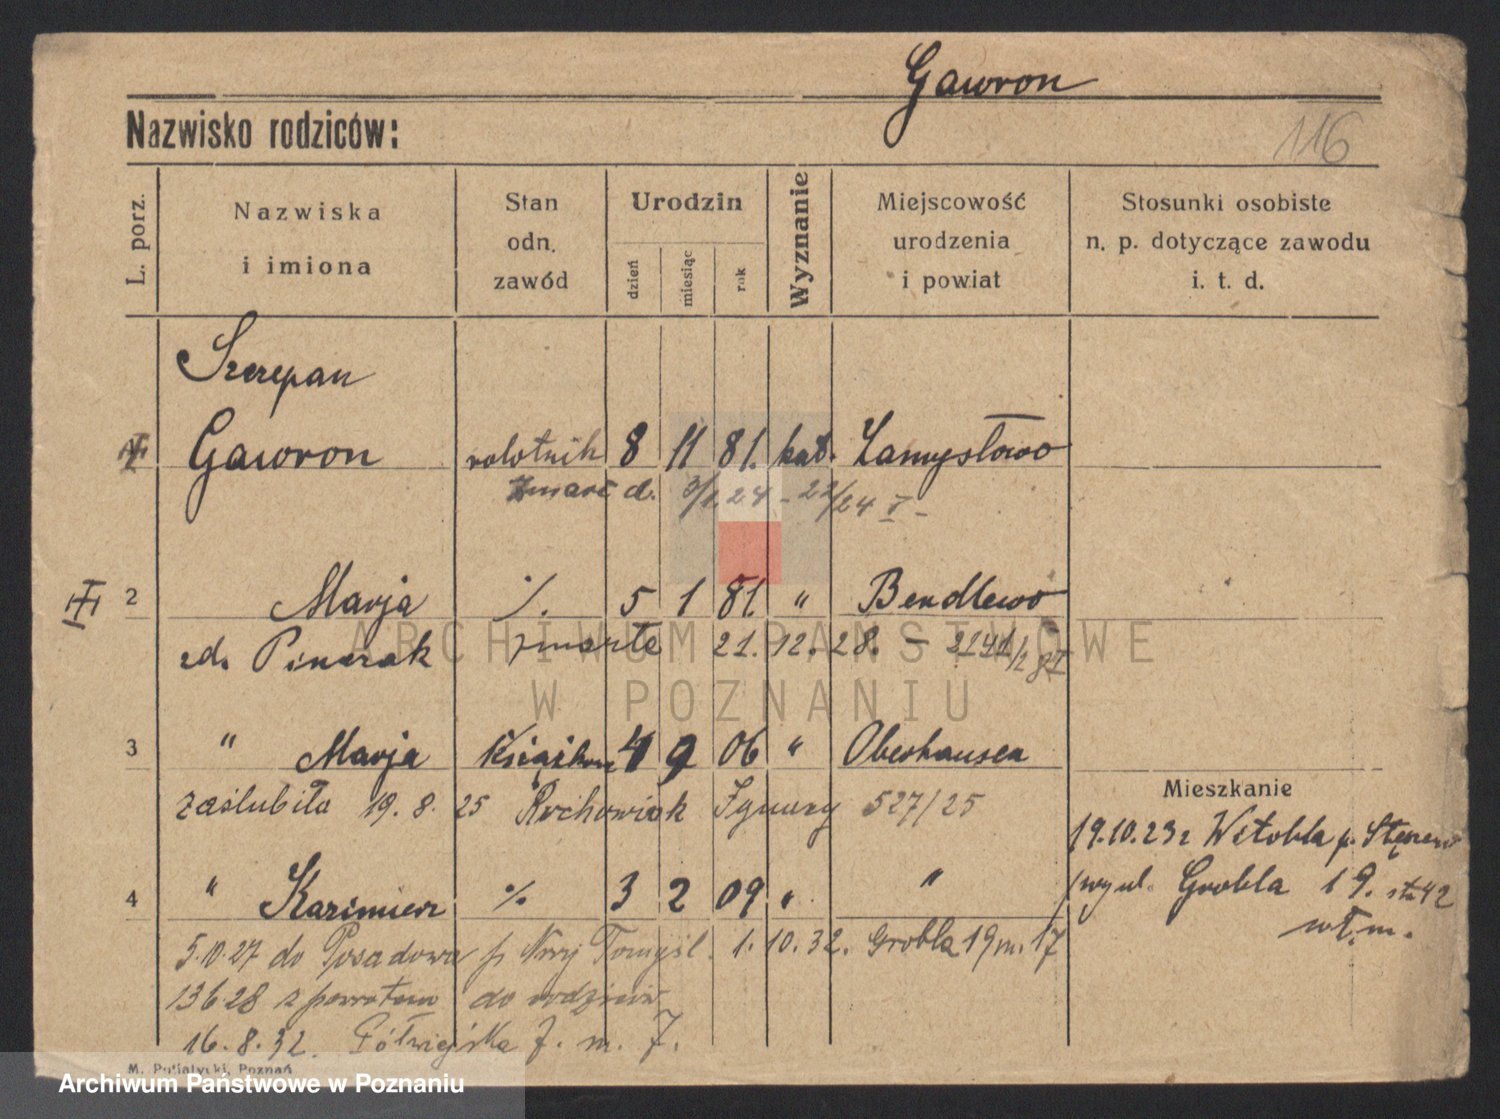 Gawron
Nazwisko rodziców:
116
L. porz.
Nazwiska
i imiona
Stan
odn.
zawód
Urodzin
dzień
miesiąc
rok
Wyznanie
Miejscowość
urodzenia
i powiat
Stosunki osobiste
n. p. dotyczące zawodu
i. t. d.
Szczepan
Gawron robotnik 8 11 81. kat. Zamysłowo
Zmarł d. 3/1 24 - 22/24 I -
2 Marja ./. 5 1 81. " Bendlewo
zd. Pinczak zmarła 21. 12. 28. -
ARCHIWUM PAŃSTWOWE
W POZNANIU
3 " Marja 4 9 06 " Oberhausen
zaślubiła 19. 8. 25 Rochowiak Ignacy 527/25
Mieszkanie
19.10.23 z Witobla p. Stęszew
4 " Kazimierz ./. 3 2 09 " "
ul. Grobla 19.
wł. m.
5.10.27 do Posadowa p. Nowy Tomyśl. 1. 10. 32. Grobla 19 m. 17
13 6 28 z powrotem do rodziców
16. 8. 32. Półwiejska 7. m. 7.
M. Putiatycki, Poznań
Archiwum Państwowe w Poznaniu